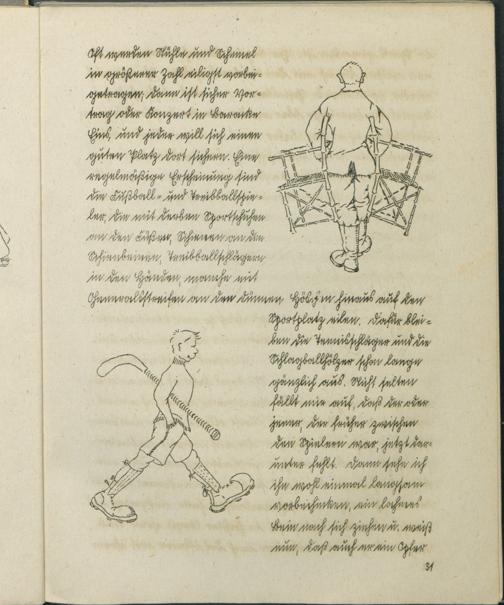 Oft werden Stühle und Schemel
in größerer Zahl eiligst vorbei-
getragen; dann ist sicher Vor-
trag oder Konzert in Baracke
Eins, und jeder will sich einen
guten Platz dort sichern. Eine
regelmäßige Erscheinung sind
die Fußball- und Treibballspie-
ler, die mit derben Sportschuhen
an den Füßen, Schienen an den
Schienbeinen, Treibballschlägern
in den Händen, manche mit
Generalsstreifen an den dünnen Hös'chen hinaus auf den
Sportplatz eilen. Dafür blei-
ben die Tennisschläger und die
Schlagballhölzer schon lange
gänzlich aus. Nicht selten
fällt mir auf, daß der oder
jener, der früher zwischen
den Spielern war, jetzt dar-
unter fehlt. Dann sehe ich
ihn wohl einmal langsam
vorbeihinken, ein lahmes
Bein nach sich ziehen u. weiß
nun, daß auch er ein Opfer
31